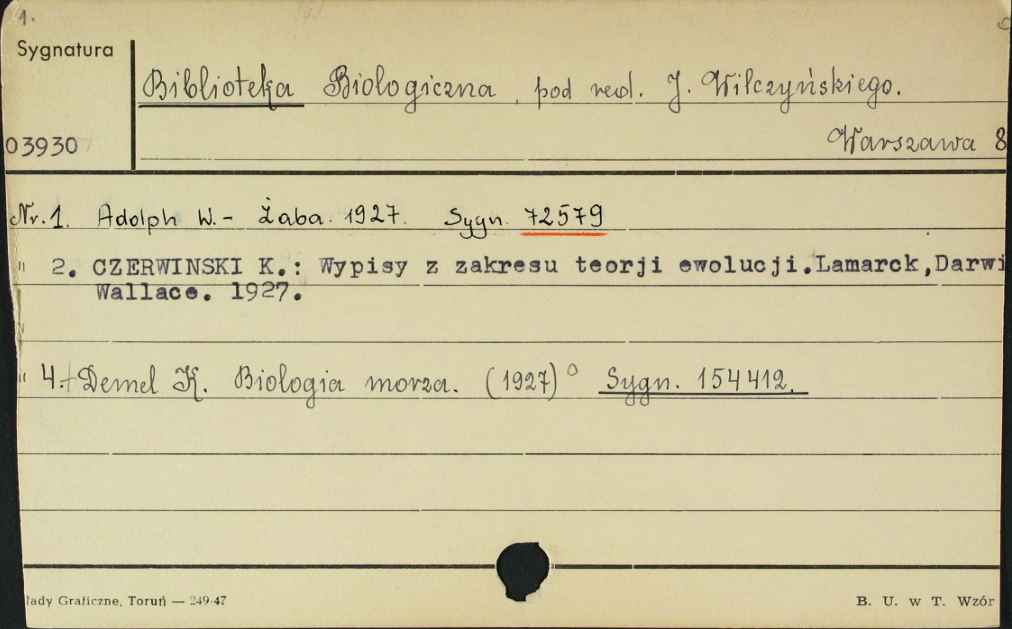 1.
Sygnatura
Biblioteka Biologiczna, pod red. J. Wilczyńskiego.
03930
Warszawa 8
Nr. 1. Adolph W. - Żaba. 1927. Sygn. 72579
" 2. CZERWINSKI K.: Wypisy z zakresu teorji ewolucji.Lamarck,Darwi
Wallace. 1927.
" 4. Demel K. Biologia morza. (1927) Sygn. 154412.
łady Graficzne, Toruń — 249-47
B. U. w T. Wzór